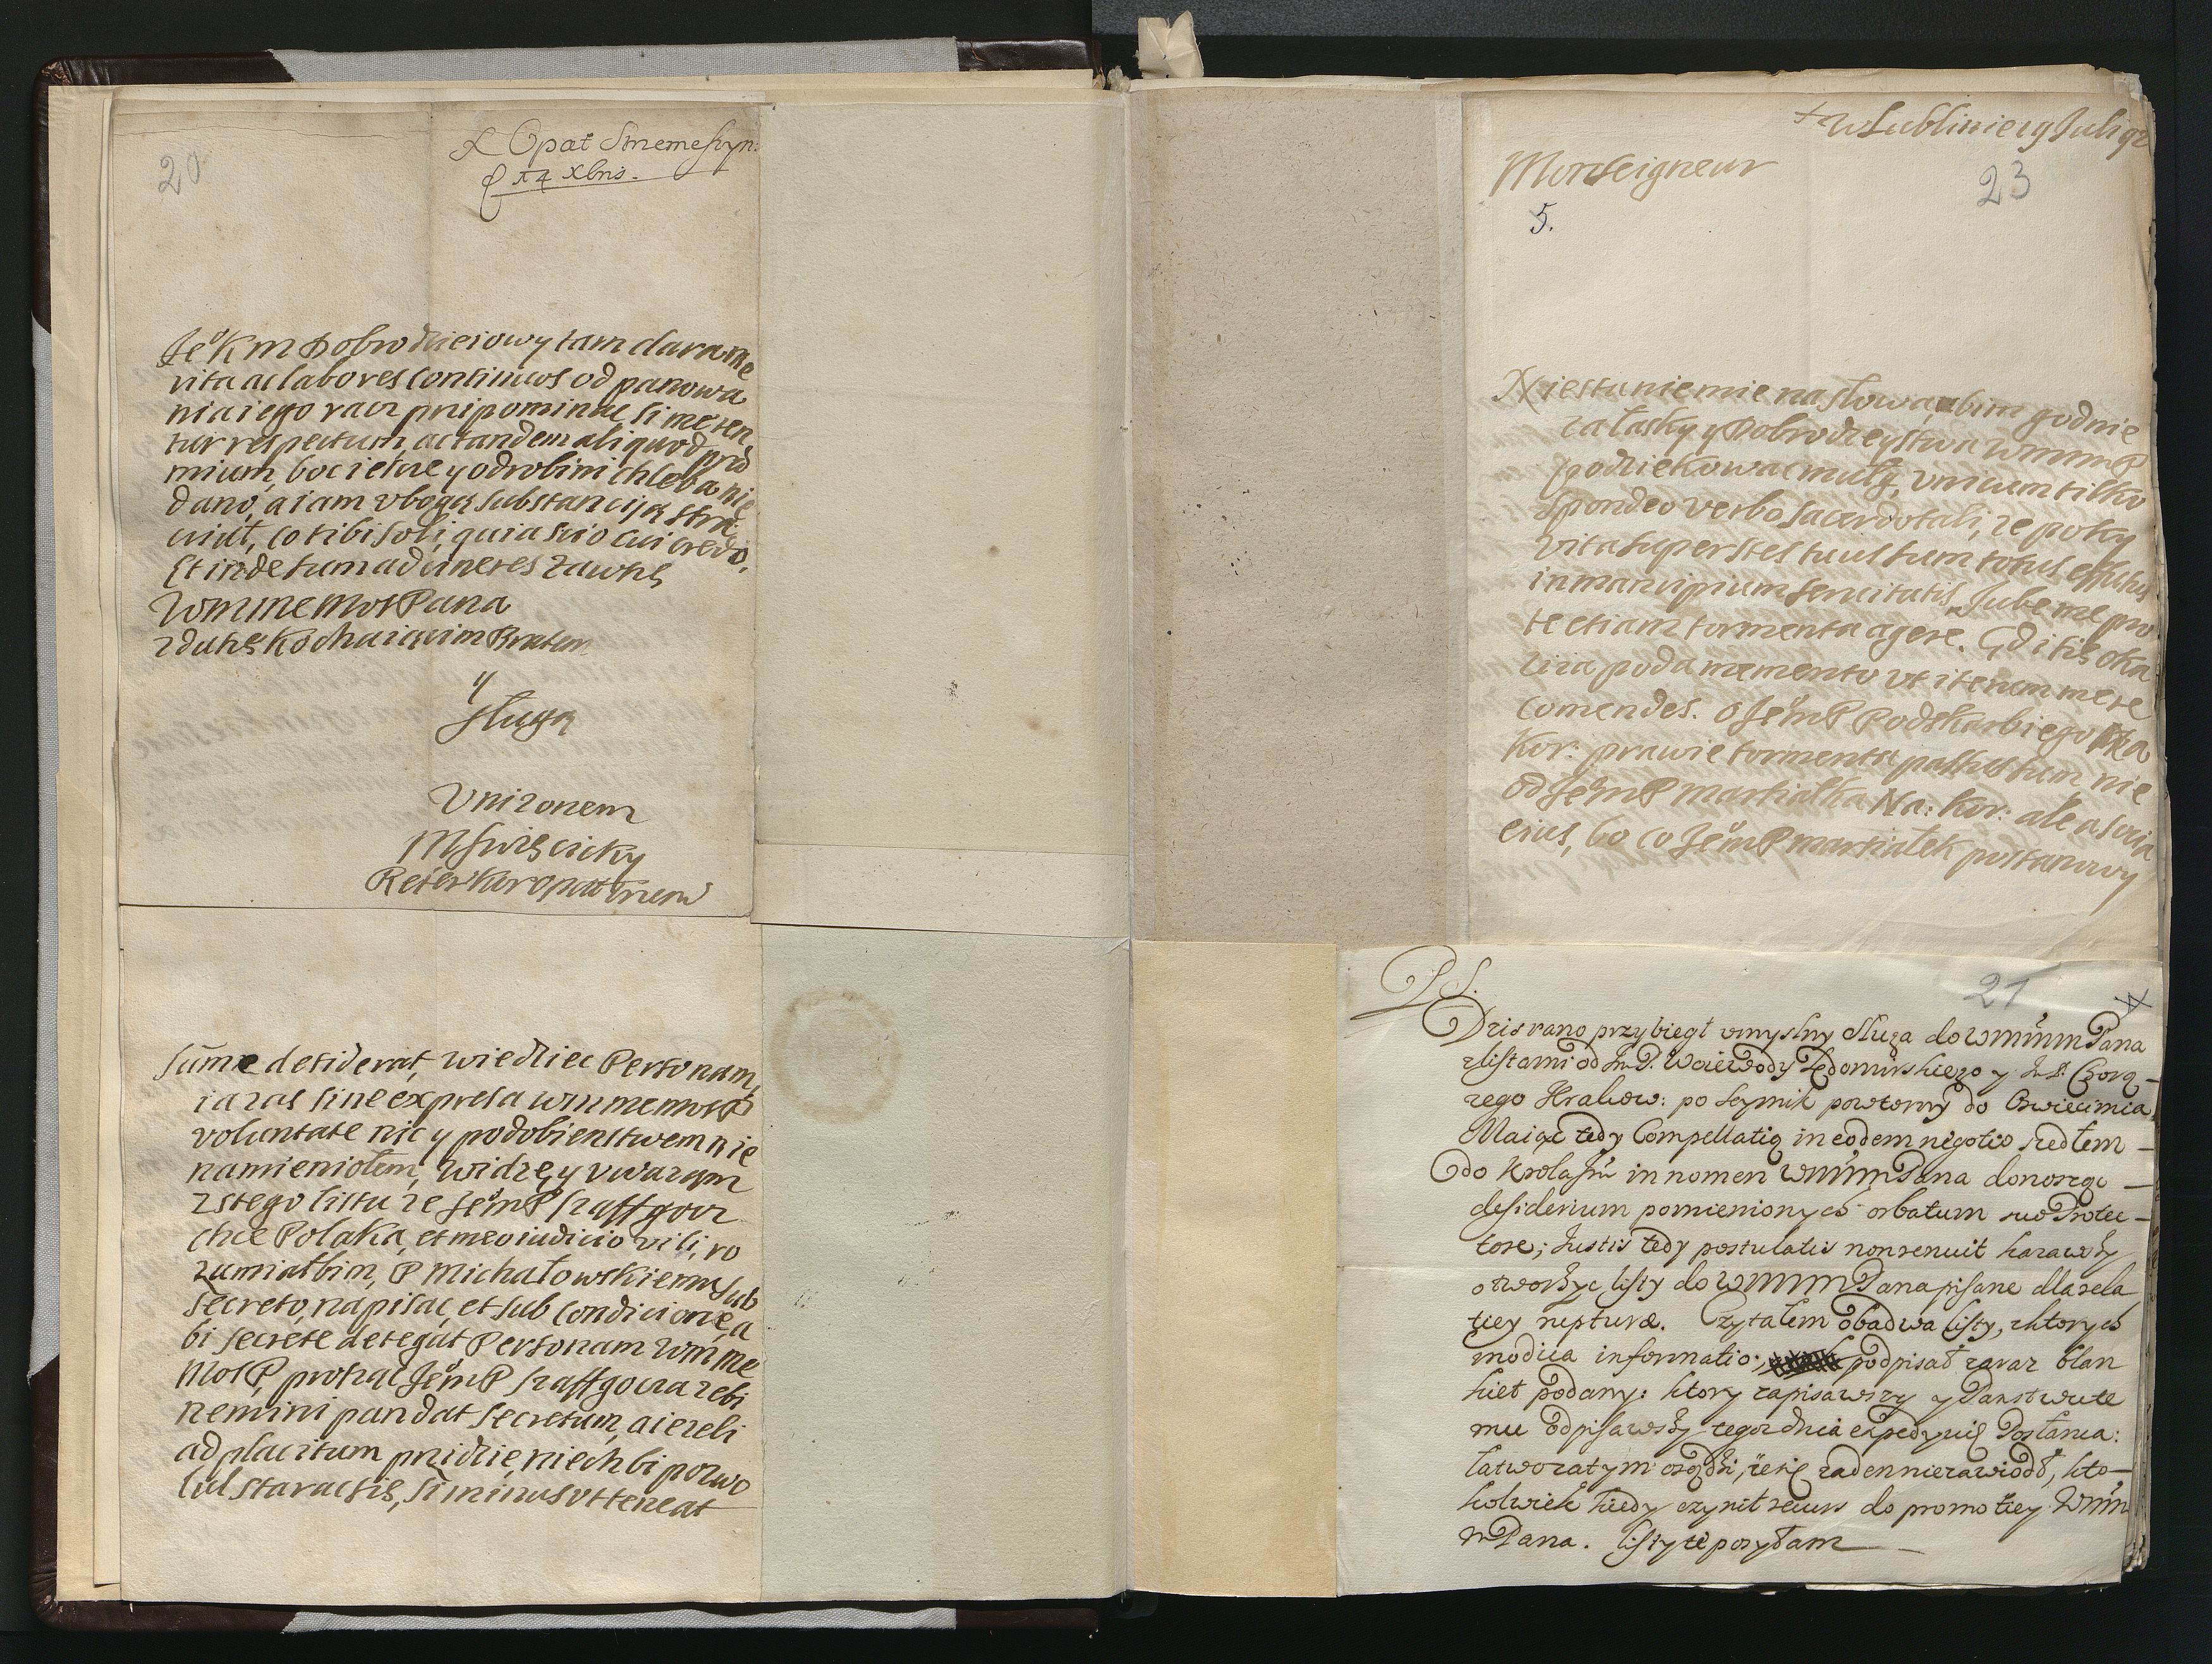 20
X Opat Trzemeszyn:
14 Xbris.
JeoKm Dobrodzieiowy tam clara me
rita ac labores continuos od panowa
nia iego racz pripominac si meren
tur respectum, ac tandem aliquod prae
mium, boc ietcze y odrobini chleba nie
dano, a iam vbogą substanciją stra
ciuł, co tibi soli, quia scio cui credo.
Et inde sum ad cineres zawsze
WMMMe MosPana
zdusze kochaiącim Bratem
y
sługą
Vnizonem
MSwięcicky
Refer Kor opat trzem
sume desiderat, wiedziec Personam,
ia zas sine expresa wmmemosP
voluntate nic y podobienstwem nie
namieniołem, widzę y vwazym
z tego listu ze JemP Szaffgocz
chce Polaka, et meo iudicio vili, ro
zumiałbim, P Michałowskiemu sub
secreto, napisac, et sub condicione, a
bi secrete detegat Personam Wmme
MosP, protzac JemP Szaffgocza zebi
nemini pandat secretum, a iezeli
ad placitum pridzie, niechbi pozwo
lul starac się, si minus vt teneat
+ w Lublinie 19 Juli 92
23
Monseigneur
5.
Nie stanie mie na słowa, abim godnie
za łasky y Dobrodzieystwa WmmmP
podziekowac mułg, vnicum tilko
spondeo verbo sacerdotali, ze poky
vita superstes tuus sum totus effusus
in mancipium servitutis, Jube me pro
te etiam tormenta agere. Gdi się oka
zia poda memento vt iterum me re
comendes. o JemP Podskarbiego Na
Kor: prawie tormenta passus sum, nie
od JemP marsiałka Na: kor: ale a socia
eius, bo co JemP marsiałek postanowy
PS.
21
Dzis rano przybiegł vmyslny Sługa do WMMMPana
z listami od Jm P. Woiewody Sędomirskiego y Jm P. Chorą-
zego Krakow: po Seymik powtorny do Oswiecimia.
Maiąc tedy Compellatią in eodem negotio szedłem-
do Krola Jmci in nomen WMMMPana donosząc-
desiderium pomienionych orbatum suo Protec-
tore; Justis tedy postulatis non renuit kazawszy
otworzyc listy do WMMMPana pisane dla rela
tiey rupturae. Czytałem obadwa listy, z ktorych
modica informatio; podpisał zaraz blan
kiet podany: ktory zapisawszy y Panstwu te
mu odpisawszy tegoz dnia expedyuię Posłanca:
łatwo za tym osądzi, że się zaden nie zawiodł, kto-
kolwiek kiedy czynił recurs do promotiey WMM
mPana. listy te posyłam